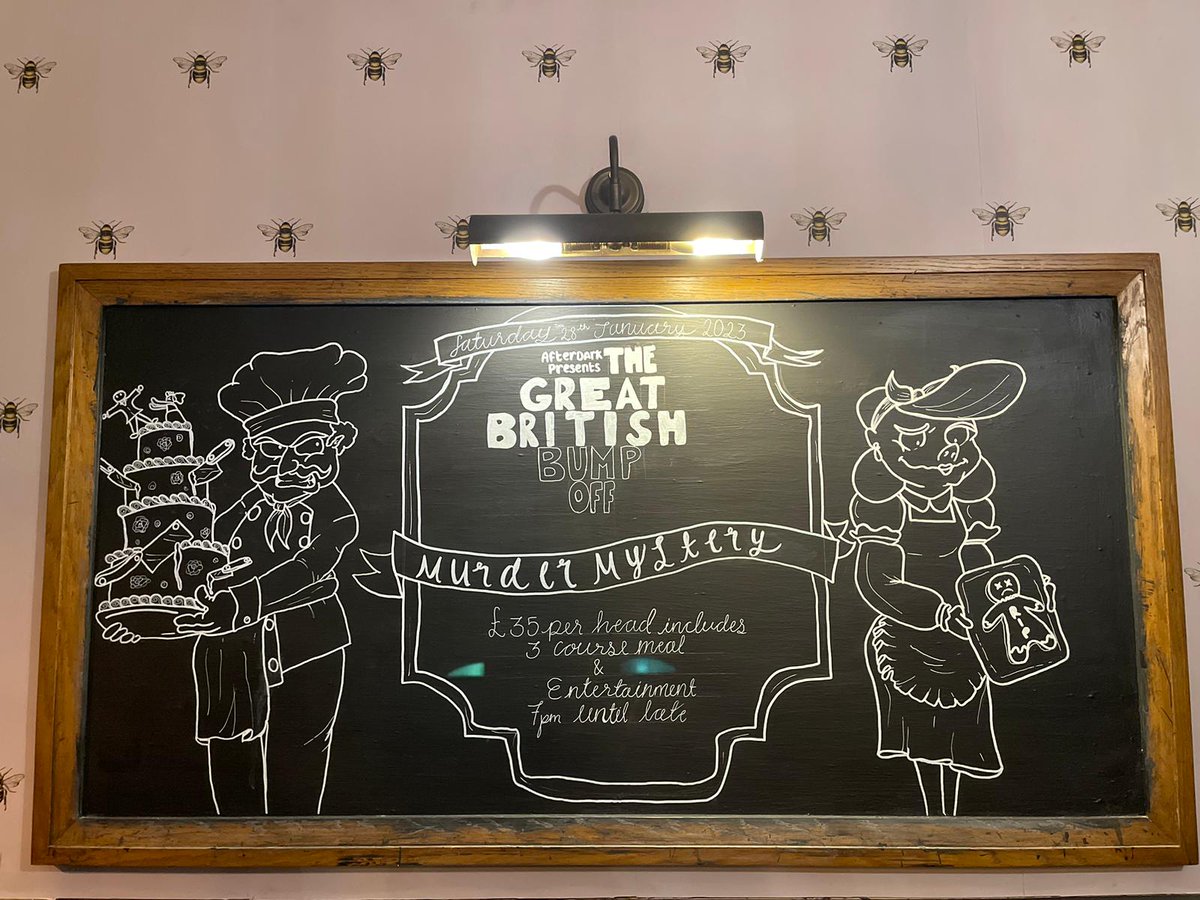 Saturday 28th January 2023
AfterDark
Presents THE
GREAT
BRITISH
BUMP
OFF
Murder Mystery
£35 per head includes
3 course meal
&
Entertainment
7pm until late